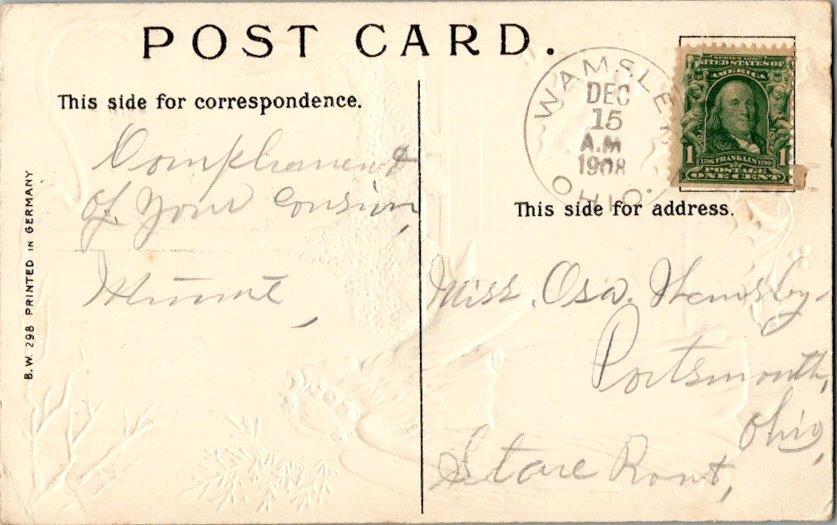 POST CARD.
This side for correspondence.
WAMSLEY
OHIO.
DEC
15
A.M
1908
SERIES 1902
UNITED STATES OF
AMERICA
1 1
1706 FRANKLIN 1790
POSTAGE
ONE CENT
This side for address.
B. W. 298 PRINTED IN GERMANY
Compliment
of your cousin,
Minnie,
Miss. Osa.
Portsmouth,
Ohio,
Rout,